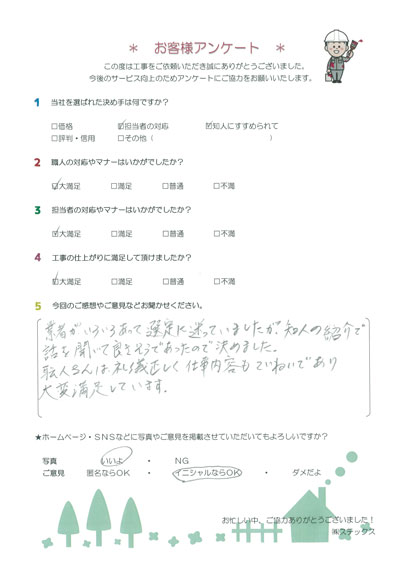 ＊ お客様アンケート ＊
この度は工事をご依頼いただき誠にありがとうございました。
今後のサービス向上のためアンケートにご協力をお願いいたします。
1 当社を選ばれた決め手は何ですか？
□価格 ☑担当者の対応 ☑知人にすすめられて
□評判・信用 □その他（ ）
2 職人の対応やマナーはいかがでしたか？
☑大満足 □満足 □普通 □不満
3 担当者の対応やマナーはいかがでしたか？
☑大満足 □満足 □普通 □不満
4 工事の仕上がりに満足して頂けましたか？
☑大満足 □満足 □普通 □不満
5 今回のご感想やご意見などお聞かせください。
業者がいろいろあって選定に迷っていましたが、知人の紹介で
話を聞いて良さそうであったので決めました。
職人さんは礼儀正しく仕事内容もていねいであり
大変満足しています。
★ホームページ・SNSなどに写真やご意見を掲載させていただいてもよろしいですか？
写真 いいよ ・ NG
ご意見 匿名ならOK ・ イニシャルならOK ・ ダメだよ
お忙しい中、ご協力ありがとうございました！
㈱ステックス